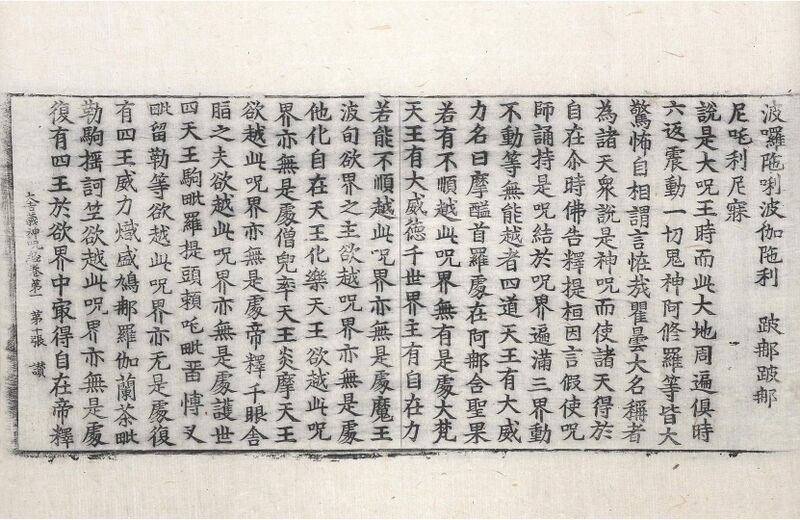 波囉陁唎波伽陁利　跛那跛那
尼吒利尼寐
說是大呪王時而此大地周遍俱時
六返震動一切鬼神阿修羅等皆大
驚怖自相謂言恠哉瞿曇大名稱者
為諸天衆說是神呪而使諸天得於
自在尒時佛告釋提桓因言假使呪
師誦持是呪結於呪界遍滿三界動
不動等無能越者四道天王有大威
力名曰摩醯首羅處在阿那含聖果
若有不順越此呪界無有是處大梵
天王有大威德千世界主有自在力
若能不順越此呪界亦無是處魔王
波旬欲界之主欲越此呪界亦無是處
他化自在天王化樂天王欲越此呪
界亦無是處僧兜率天王炎摩天王
欲越此呪界亦無是處帝釋千眼舍
脂之夫欲越此呪界亦無是處護世
四天王駒毗羅提頭賴吒毗畱愽叉
毗留勒等欲越此呪界亦无是處復
有四王威力熾盛鳩那羅伽蘭茶毗
勒駒摇訶竺欲越此呪界亦無是處
復有四王於欲界中㝡得自在帝釋
神呪經卷第一　第十張　讃